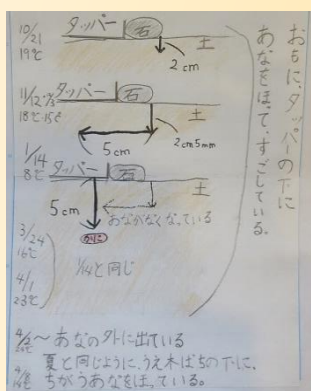 おもに、タッパーの下に
あなをほって、すごしている。
10/21
19℃
タッパー
石
土
2cm
11/12
18℃ 15℃
タッパー
石
土
5cm
2cm5mm
1/14
8℃
タッパー
石
土
5cm
あながなくなっている
かに
3/24
16℃
1/14と同じ
4/1
23℃
〜あなの外に出ている
夏と同じように、うえ木ばちの下に、
ちがうあなをほっている。